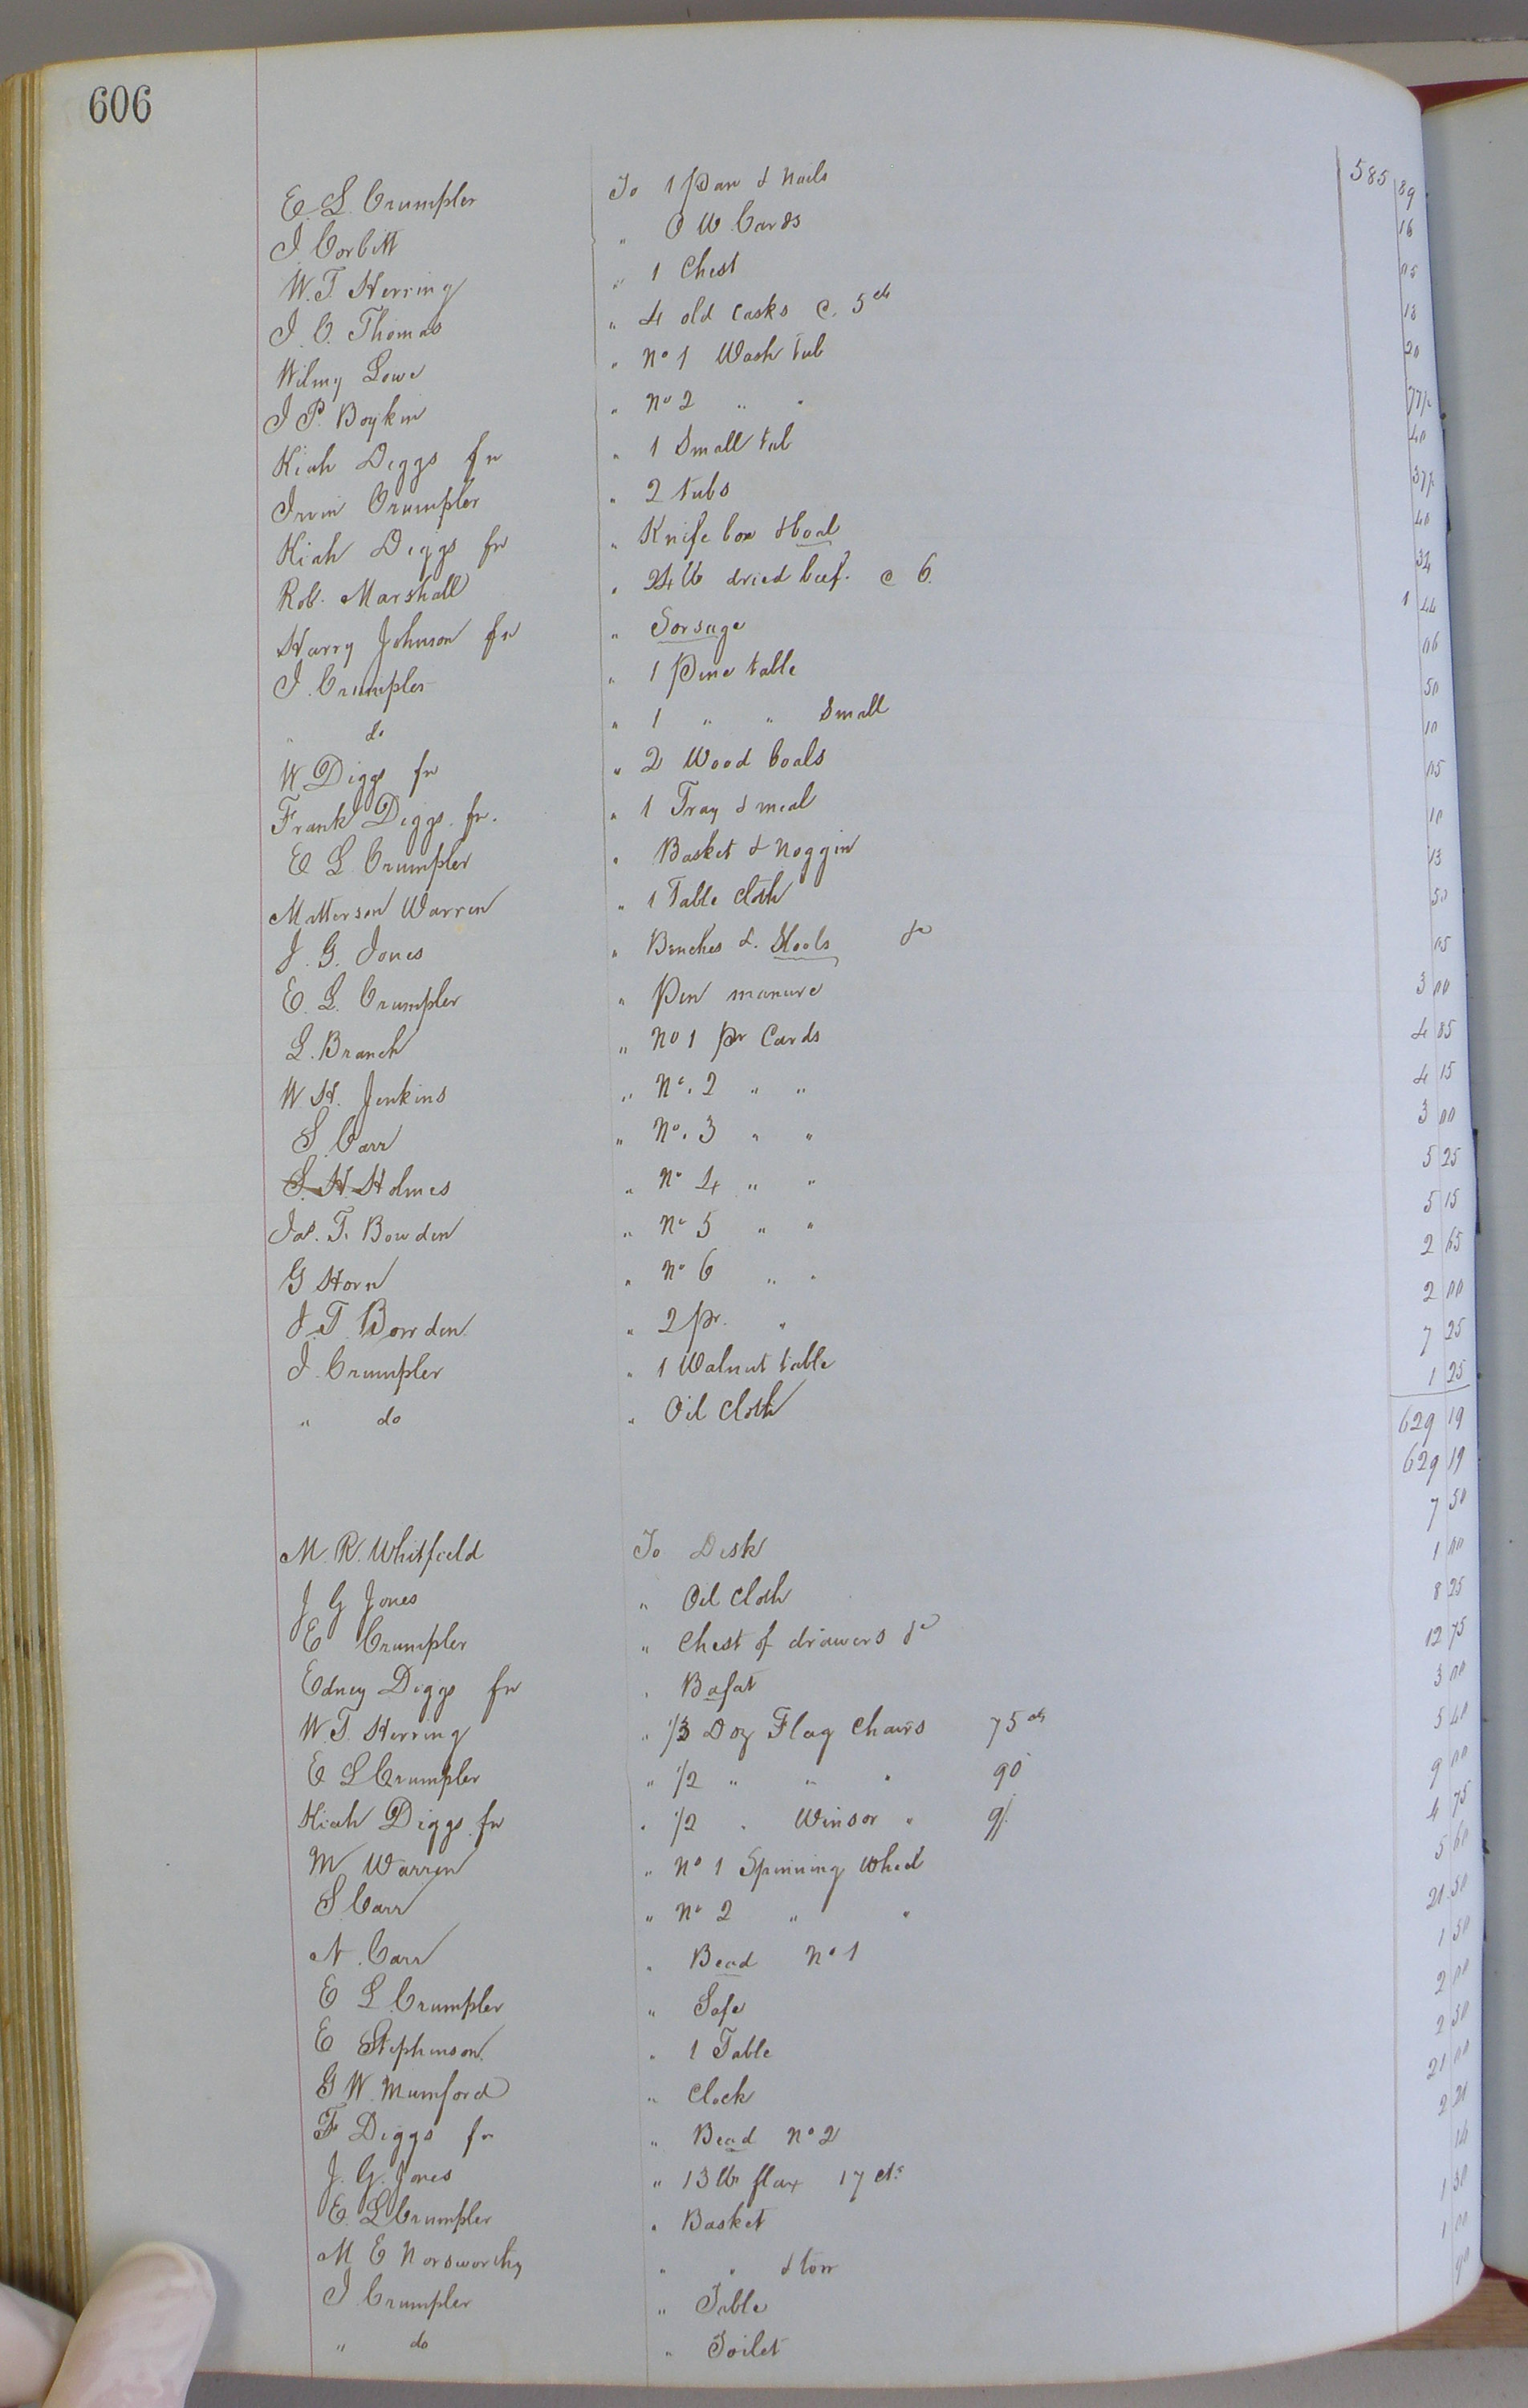 606
585 89
E. L. Crumpler To 1 Pan & nails 16
J. Corbitt " O W Cards 05
W. T. Herring " 1 Chest 18
J. C. Thomas " 4 old casks @ 5 cts 20
Wilmy Lowe " No 1 Wash tub 77½
J P. Boykin " No 2 " " 40
Kiah Diggs fn " 1 Small tub 37½
Irvin Crumpler " 2 tubs 40
Kiah Diggs fn " Knife box & boal 34
Rob. Marshall " 24 lb dried beef. @ 6. 1 44
Harry Johnson fn " Sorsage 06
J. Crumpler " 1 Pine table 50
" do " 1 " " Small 10
W Diggs fn " 2 Wood boals 05
Frank Diggs. fn. " 1 Tray & meal 10
E L Crumpler " Basket & noggin 13
Matterson Warren " 1 Table cloth 50
J. G. Jones " Benches & Stools &c 05
E. L. Crumpler " Pen manure 3 00
L. Branch " No 1 pr Cards 4 85
W. H. Jenkins " No. 2 " " 4 15
S. Carr " No. 3 " " 3 00
S. H. Holmes " No 4 " " 5 25
Jas. T. Bowden " No 5 " " 5 15
G Horn " No 6 " " 2 65
J. T. Bowden " 2 pr. " 2 00
J. Crumpler " 1 Walnut table 7 25
" do " Oil cloth 1 25
629 19
629 19
M. R. Whitfield To Desk 7 50
J G Jones " Oil cloth 1 00
E Crumpler " Chest of drawers &c 8 25
Edney Diggs fn " Bafat 12 75
W. T. Herring " 1/3 Doz Flag Chairs 75 cts 3 00
E L Crumpler " 1/2 " " " 90 5 40
Kiah Diggs fn " 1/2 " Winsor " 9/. 9 00
M Warren " No 1 Spinning Wheel 4 75
S Carr " No 2 " " 5 60
N. Carr " Bead No 1 21 50
E L Crumpler " Safe 1 50
E Stephenson " 1 Table 2 00
G W. Mumford " Clock 2 50
F Diggs fn " Bead No 2 21 00
J. G. Jones " 13 lb flax 17 cts 2 21
E. L Crumpler " Basket 14
M. E Norsworthy " " & tow 1 30
J Crumpler " Table 1 00
" do " Toilet 90